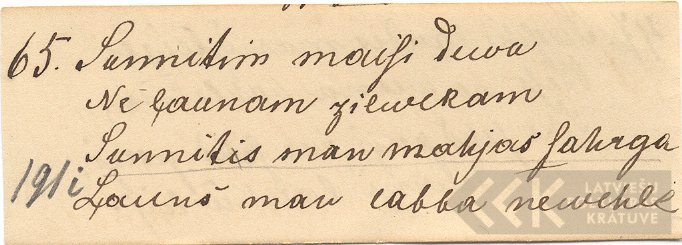 65. Sunnitim maiſi dewa
Ne ļaunam zilwekam
Sunnitis man mahjas ſahrga
191i Ļauns man labba newehlē
LATVIEŠU
KRĀTUVE